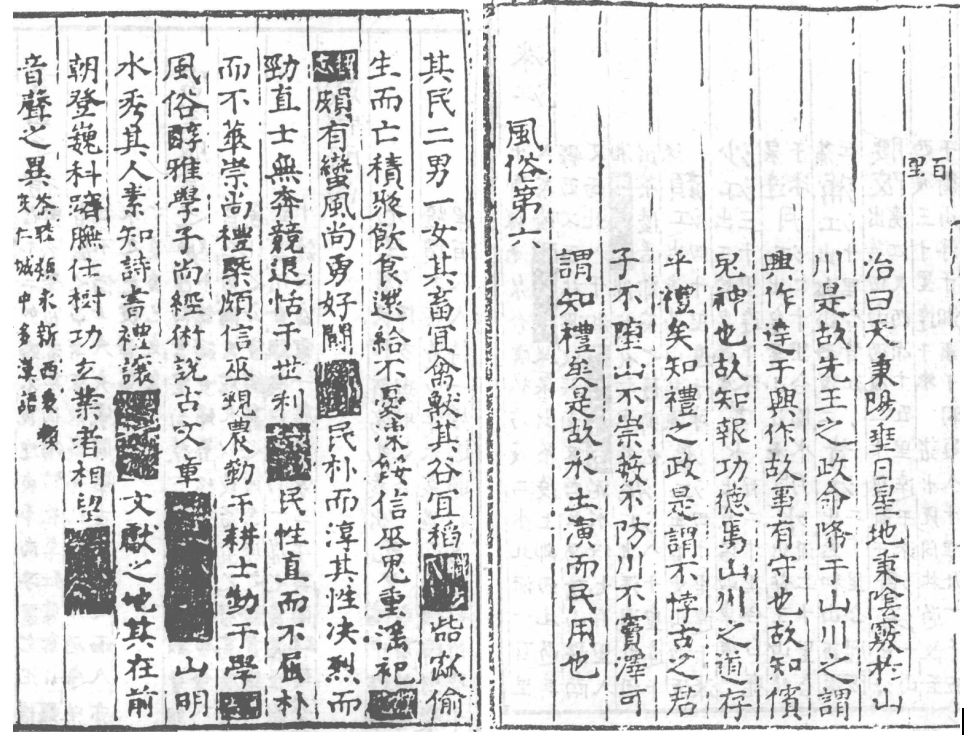 百里
治曰天秉陽垂日星地秉陰竅於山
川是故先王之政命降于山川之謂
興作達于興作故事有守也故知儐
鬼神也故知報功德焉山川之道存
乎禮矣知禮之政是謂不悖古之君
子不墮山不崇藪不防川不竇澤可
謂知禮矣是故水土演而民用也
風俗第六
其民二男一女其畜宜禽獸其谷宜稻 呰窳偷
生而亡積聚飲食還給不憂凍餒信巫鬼重淫祀
頗有蠻風尚勇好鬭 民朴而淳其性决烈而
勁直士無奔競退恬于世利 民性直而不 朴
而不華崇尚禮 頗信巫覡農勤于耕士勤于學
風俗醇雅學子尚經術説古文章 山明
水秀其人素知詩書禮讓 文獻之地其在前
朝登巍科躋膴仕樹功立業者相望
音聲之異 茶陵 永新 安仁 城中多漢語